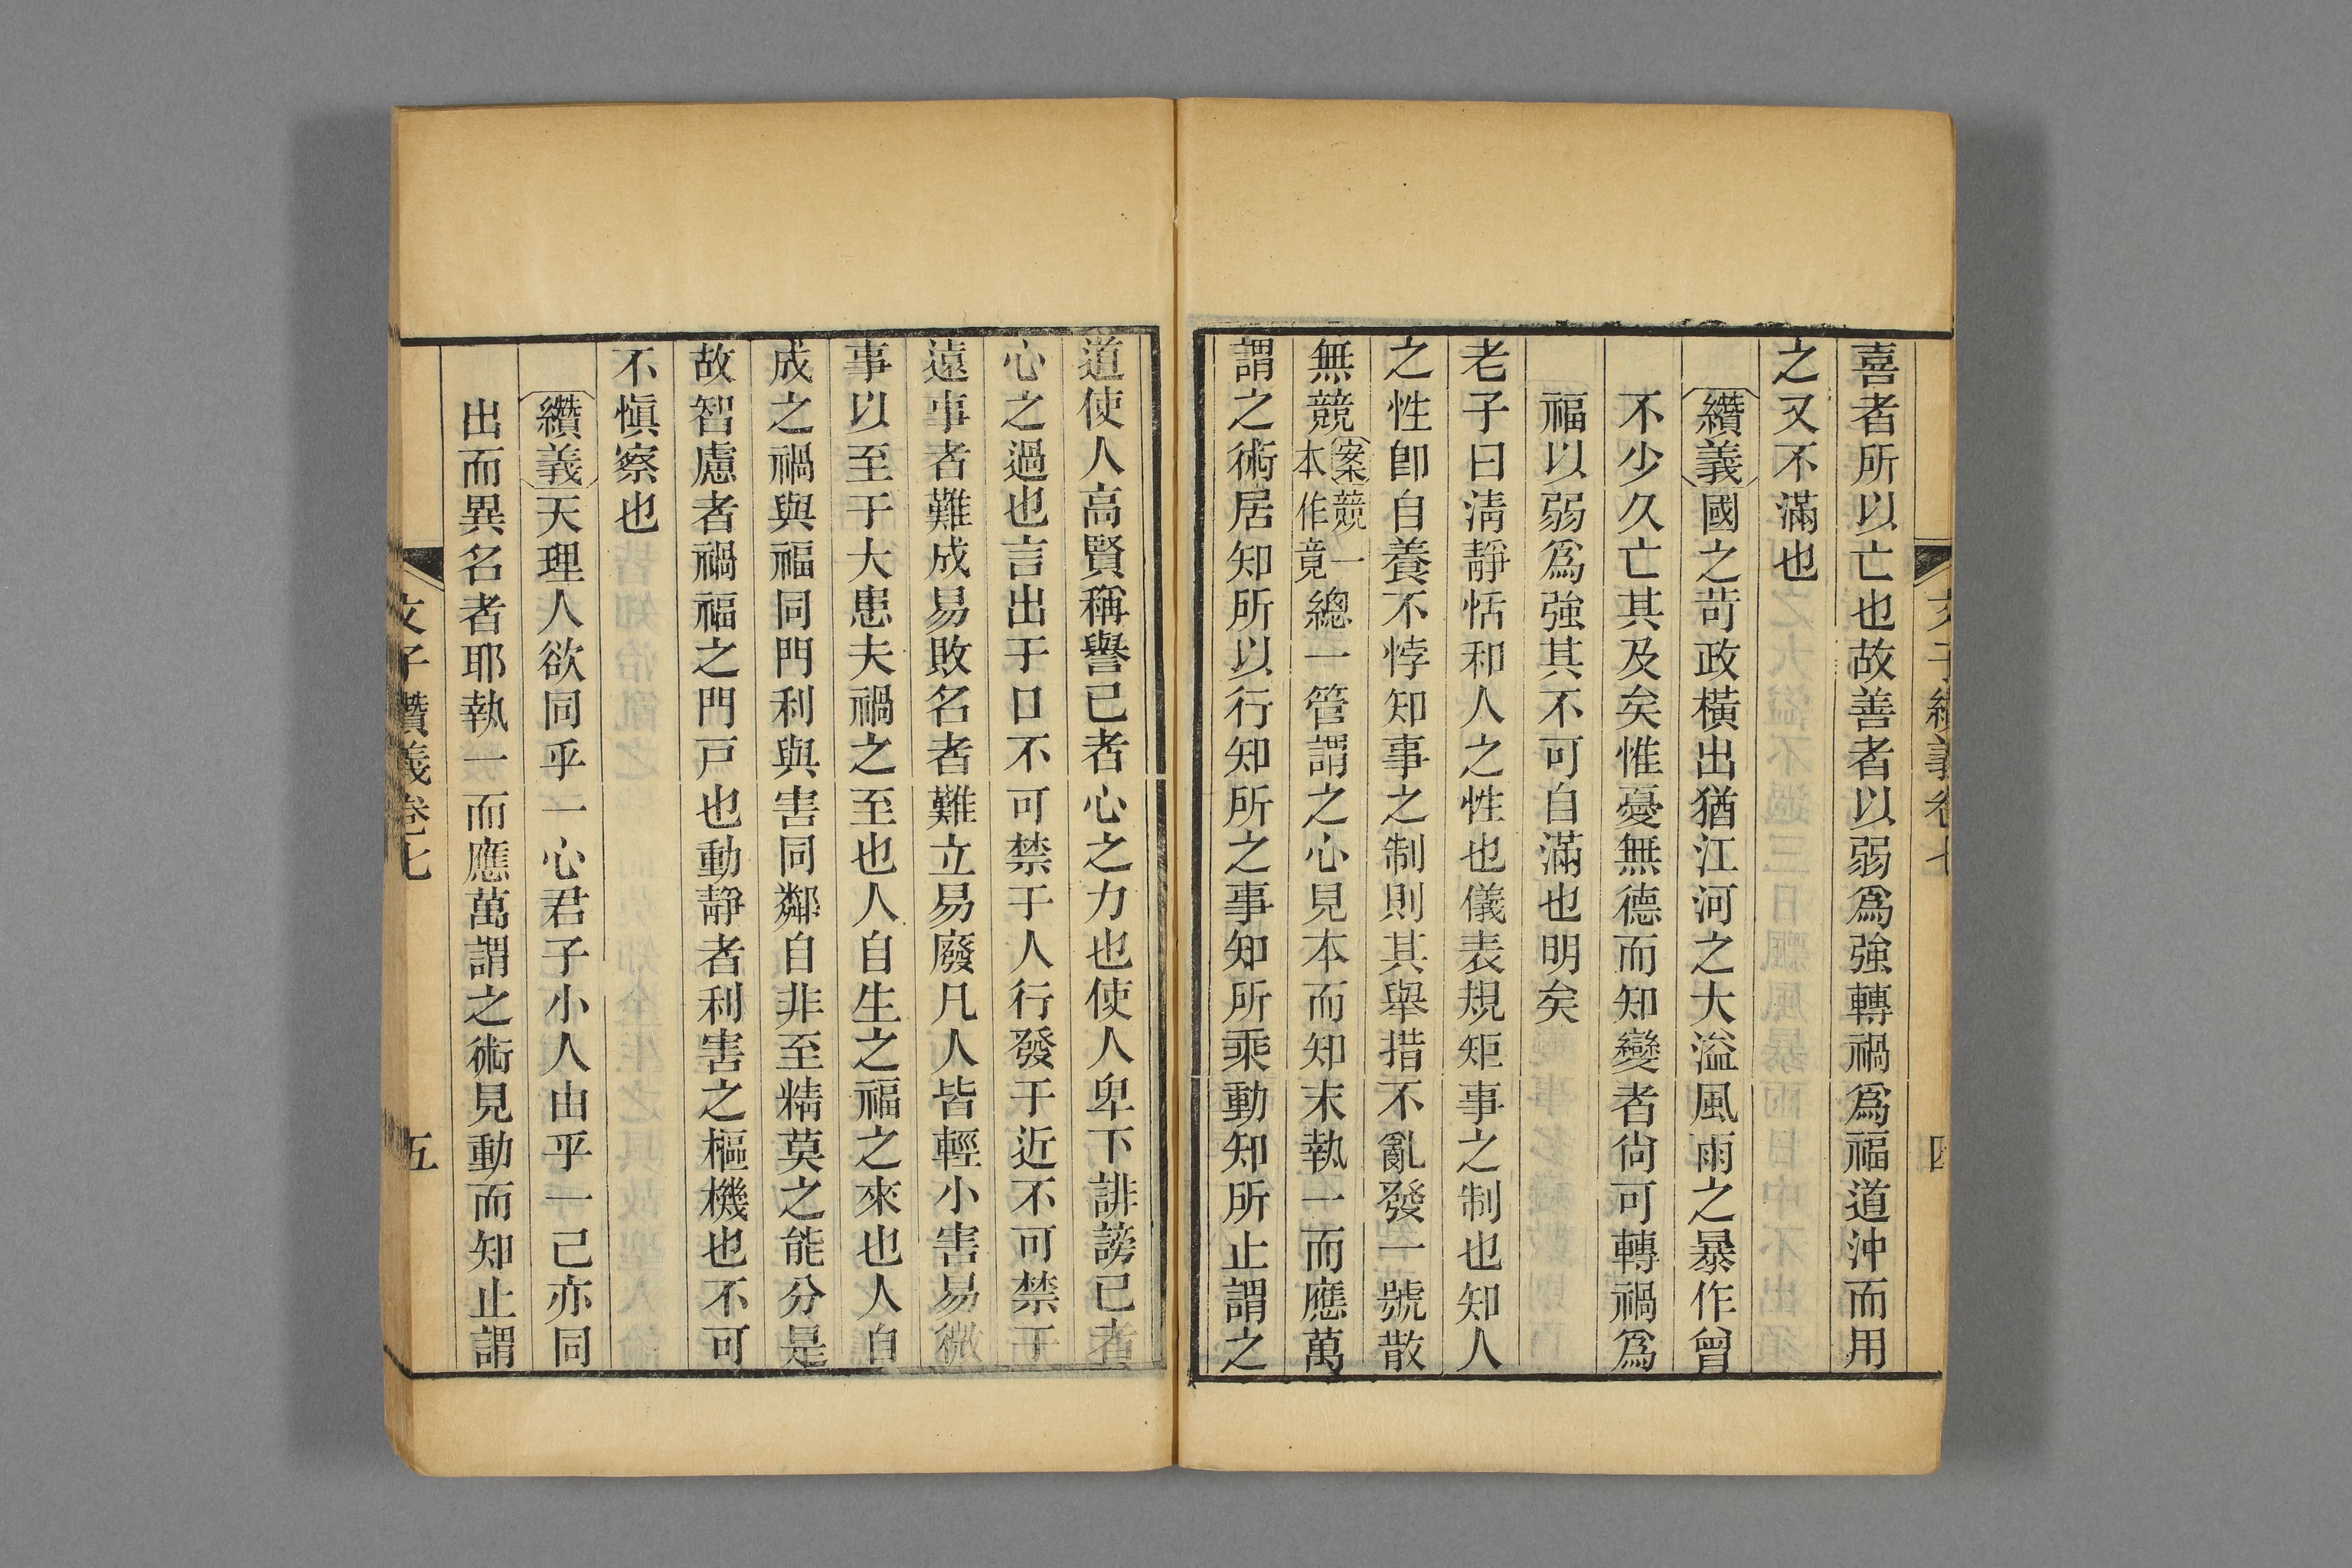 文子纘義卷七
四
喜者所以亡也故善者以弱爲強轉禍爲福道沖而用
之又不滿也
纘義國之苛政橫出猶江河之大溢風雨之暴作曾
不少久亡其及矣惟憂無德而知變者尙可轉禍爲
福以弱爲強其不可自滿也明矣
老子曰淸靜恬和人之性也儀表規矩事之制也知人
之性卽自養不悖知事之制則其舉措不亂發一號散
無競案競一本作竟總一管謂之心見本而知末執一而應萬
謂之術居知所以行知所之事知所乘動知所止謂之
道使人高賢稱譽已者心之力也使人卑下誹謗已者
心之過也言出于口不可禁于人行發于近不可禁于
遠事者難成易敗名者難立易廢凡人皆輕小害易微
事以至于大患夫禍之至也人自生之福之來也人自
成之禍與福同門利與害同鄰自非至精莫之能分是
故智慮者禍福之門戸也動靜者利害之樞機也不可
不愼察也
纘義天理人欲同乎一心君子小人由乎一己亦同
出而異名者耶執一而應萬謂之術見動而知止謂
文子纘義卷七
五